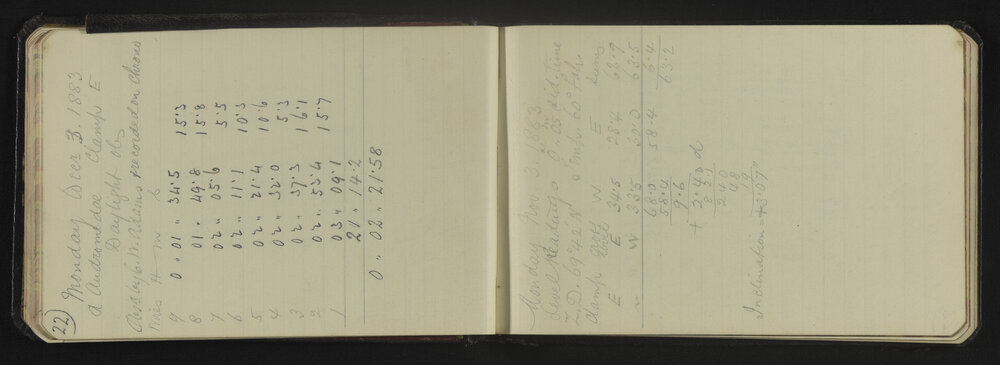 22
Monday Decr 3. 1883
α Andromedae Clamp E
Daylight obs
Obsd by C.W. Adams & recorded on Chrono
Wires H m s
9 0 " 01 " 34.5 15.3
8 01 " 49.8 15.8
7 02 " 05.6 5.5
6 02 " 11.1 10.3
5 02 " 21.4 10.6
4 02 " 32.0 5.3
3 02 " 37.3 16.1
2 02 " 53.4 15.7
1 03 " 09.1
21 " 14.2
0 " 02 " 21.58
Monday Nov 3. 1883
Level Readings 0h 25m Sid. Time
Z.D. 69° 42' N Temp. 60° Fahr.
Clamp Level W E Sums
E E 34.5 28.4 62.9
" W 33.5 30.0 63.5
68.0 58.4 6.4
58.4 63.2
9.6
+ 2.40 d
240
48
Inclination = +3.07"